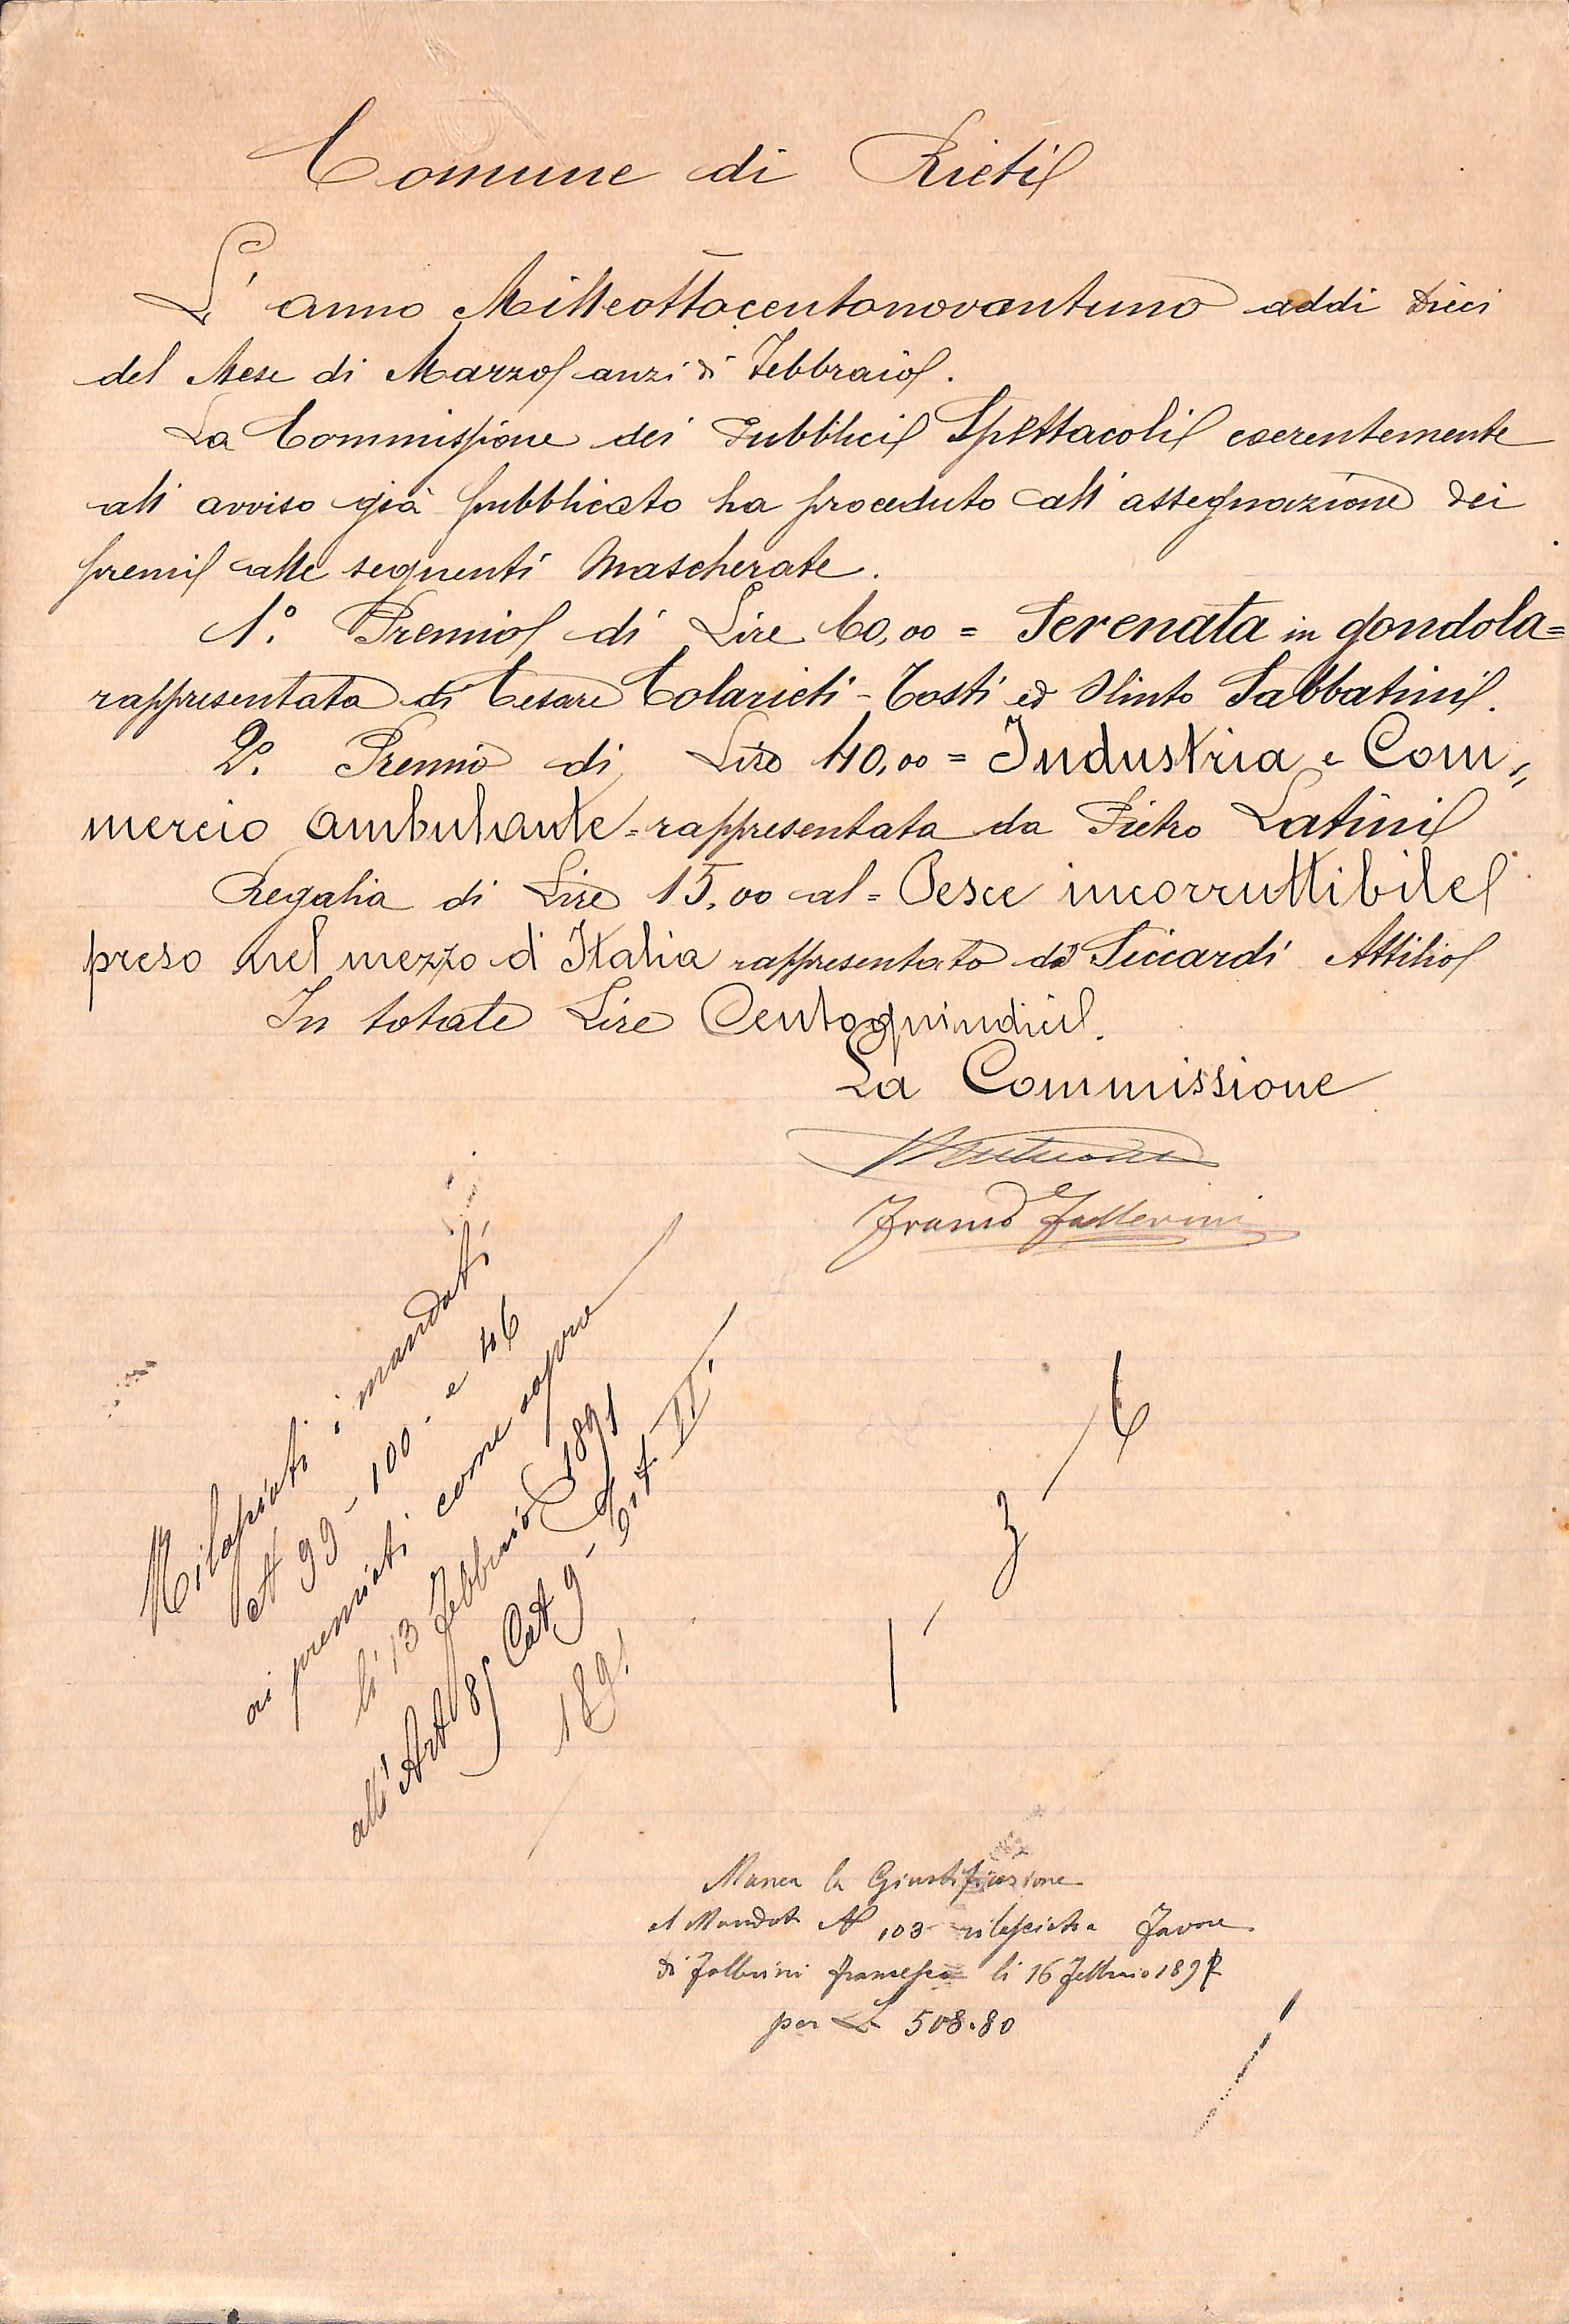 Comune di Rieti
L'anno Milleottocentonovantuno addi dieci
del Mese di Marzo anzi di Febbraio.
La Commissione dei Pubblici Spettacoli coerentemente
all'avviso già pubblicato ha proceduto all'assegnazione dei
premi alle seguenti Mascherate.
1º. Premio di Lire 60,00 = Serenata in gondola=
rappresentata di Cesare Colarieti-Tosti ed Olinto Sabbatini.
2º. Premio di Lire 40,00 = Industria e Com„
mercio ambulante=rappresentata da Pietro Latini
Regalia di Lire 15,00 al= Pesce incorruttibile
preso nel mezzo d'Italia rappresentato da Siccardi Attilio
In totale Lire Centoquindici.
La Commissione
Rilasciati i mandati
N 99-100- e 46
ai premiati come sopra
li 13 Febbraio 1891
all'Art 85 Cat 9- Tit II.
1891
6
3
1
Manca la Giustificazione
al Mandato N 103 rilasciato a favore
di Fallerini Francesco li 16 Febbraio 1891
per L 508.80